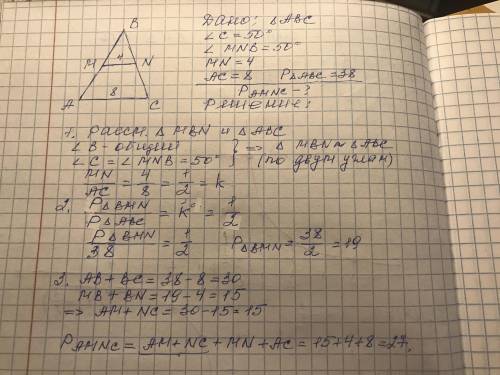 Дано: △ABC
∠C = 50°
∠MNB = 50°
MN = 4
AC = 8 P△ABC = 38
PAMNC - ?
Решение:
B
M 4 N
A 8 C
1. Рассм. △ MBN и △ABC
∠B - общий
∠C = ∠MNB = 50° } => △ MBN ~ △ABC (по двум углам)
MN/AC = 4/8 = 1/2 = k
2. P△BMN/P△ABC = k = 1/2
P△BMN/38 = 1/2 P△BMN = 38/2 = 19
3. AB + BC = 38 - 8 = 30
MB + BN = 19 - 4 = 15
=> AM + NC = 30 - 15 = 15
PAMNC = AM + NC + MN + AC = 15 + 4 + 8 = 27.